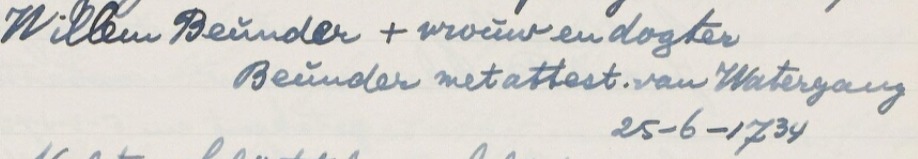 Willem Beúnder + vroúw en dogter
Beúnder met attest. van Watergang
25-6-1734